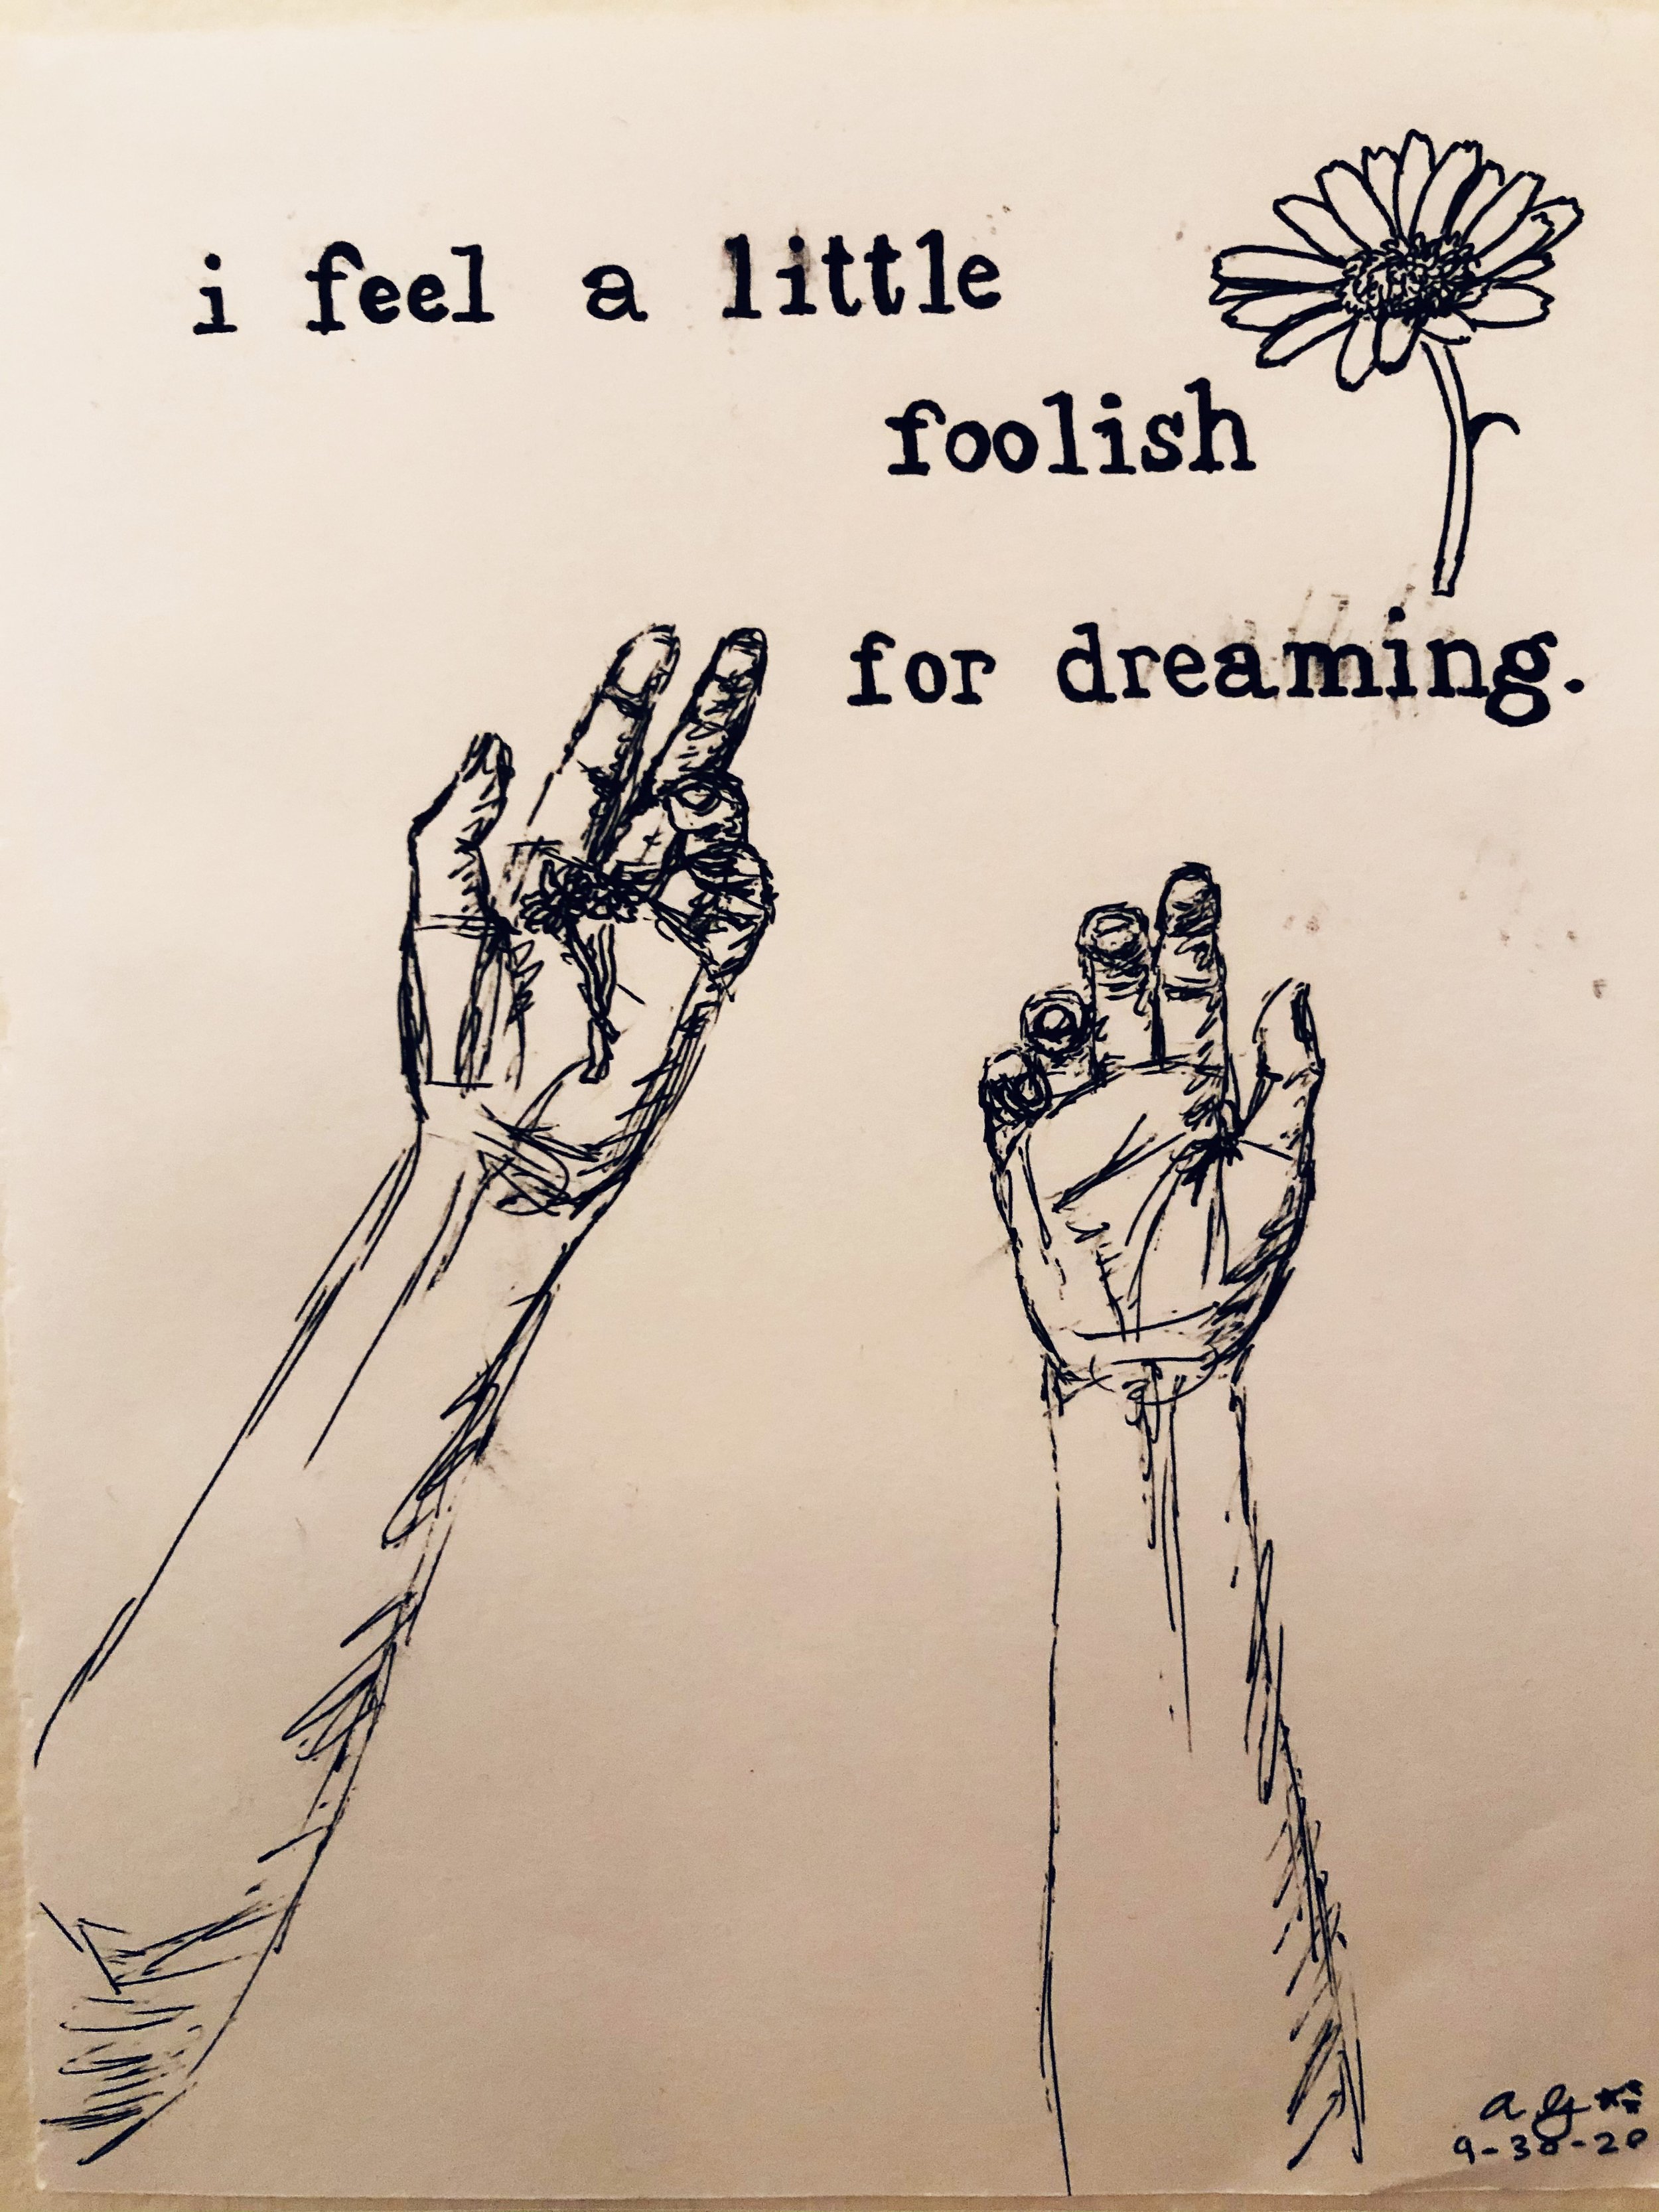 i feel a little
foolish
for dreaming.
9-30-20